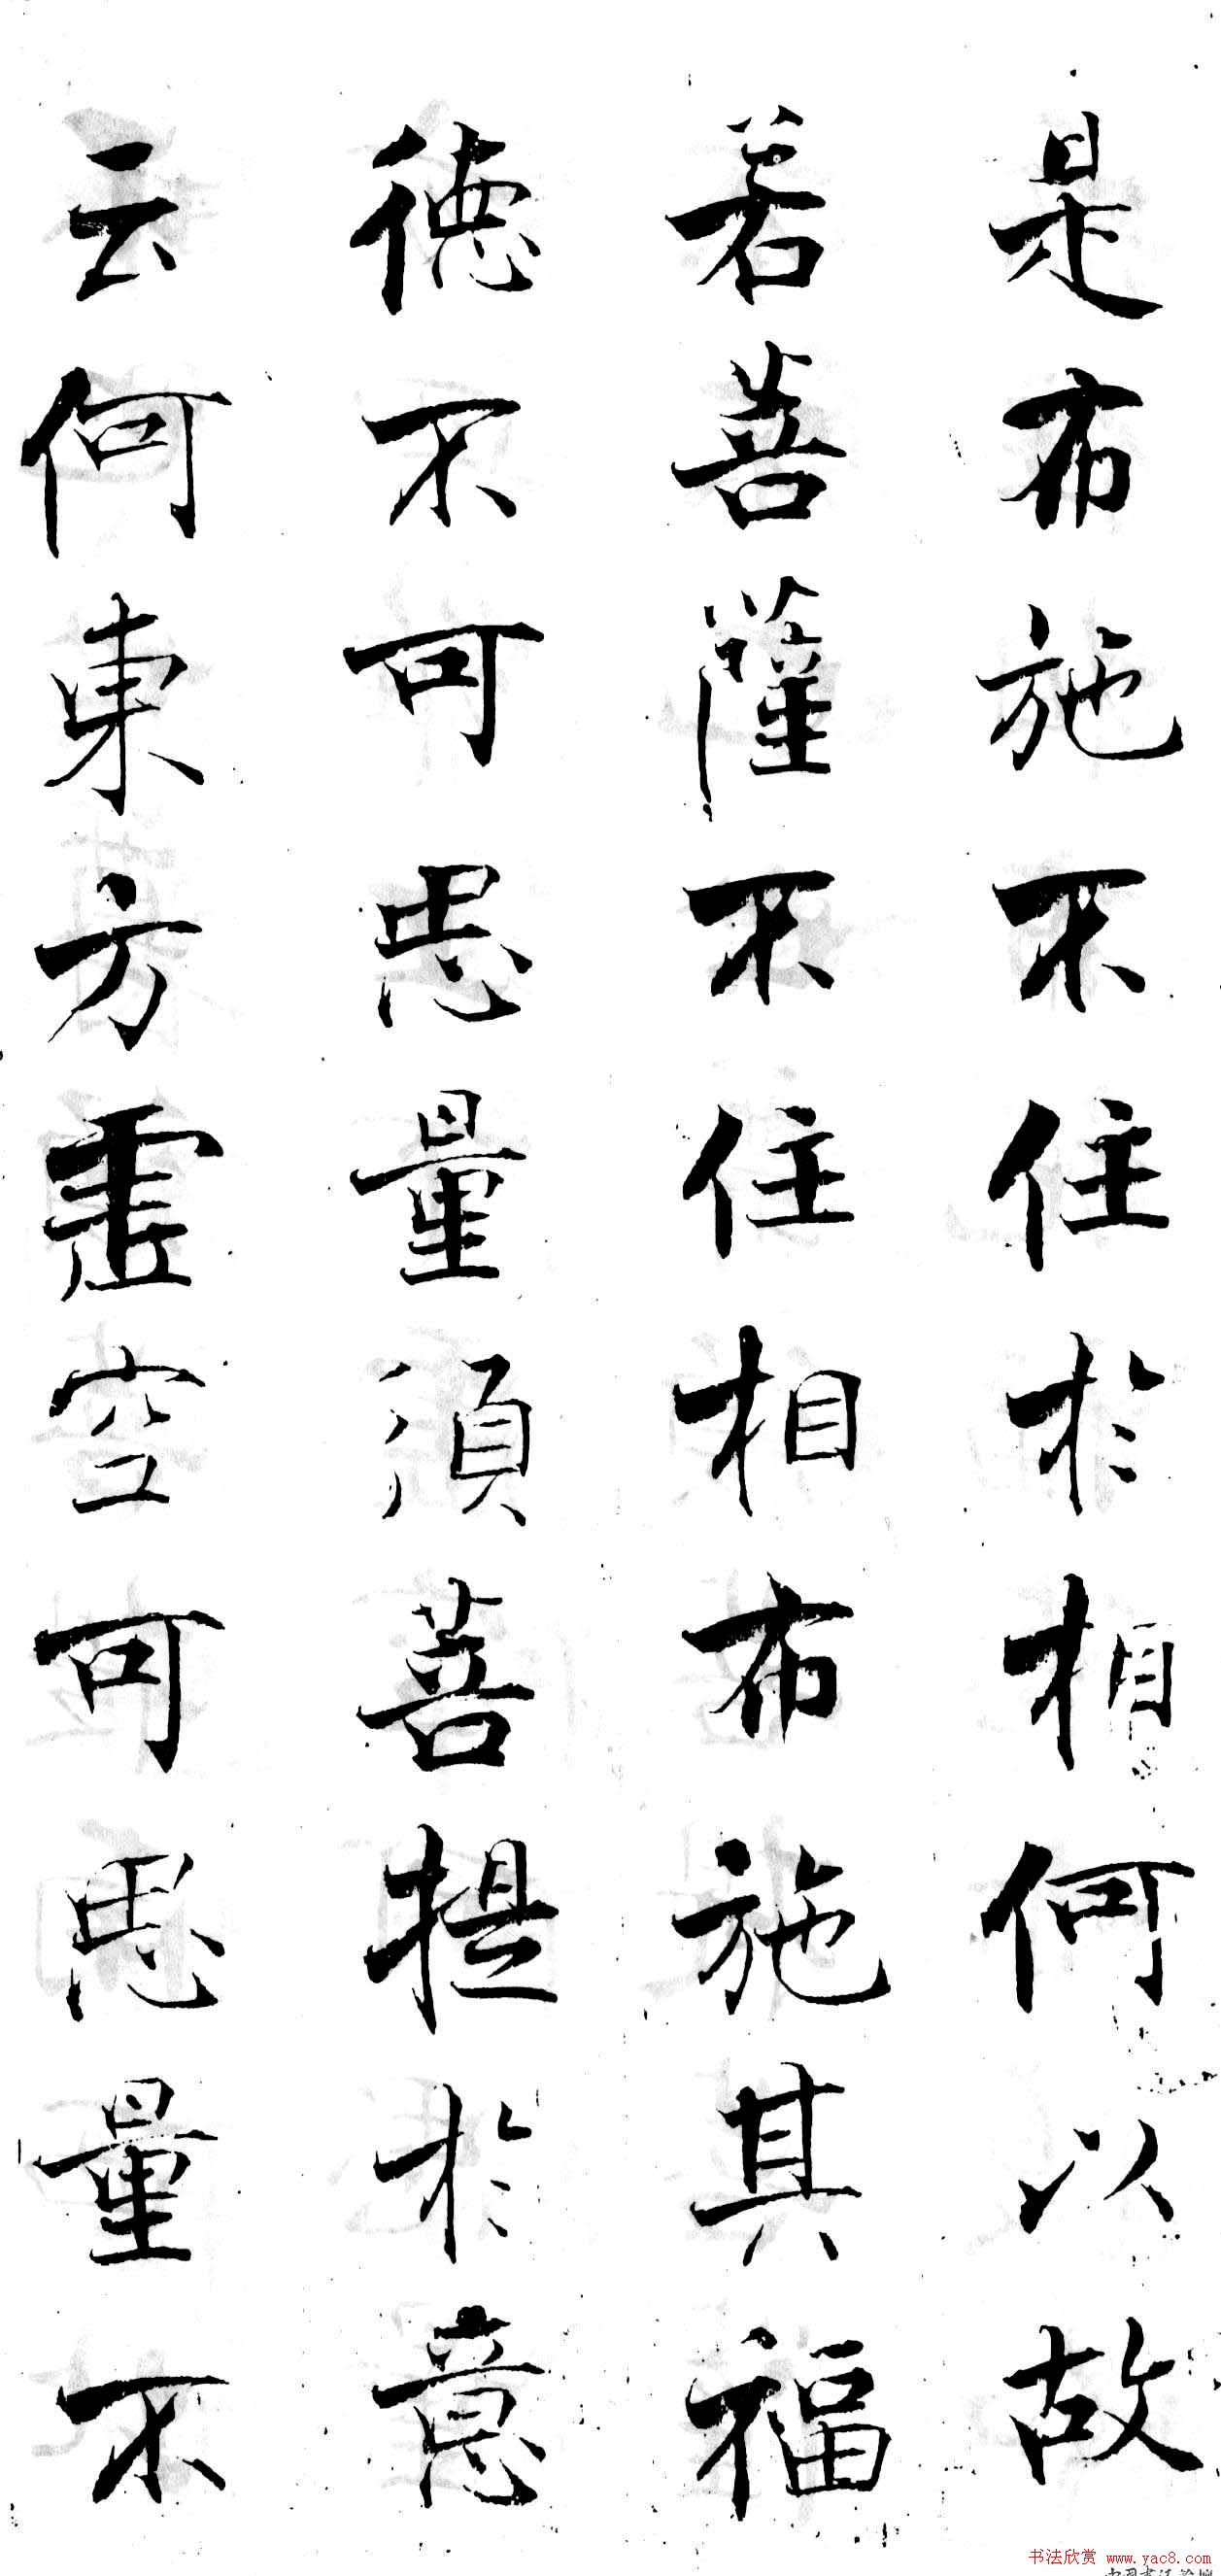 是布施不住於相何以故
若菩薩不住相布施其福
德不可思量須菩提於意
云何東方虛空可思量不
书法欣赏 www.yac8.com